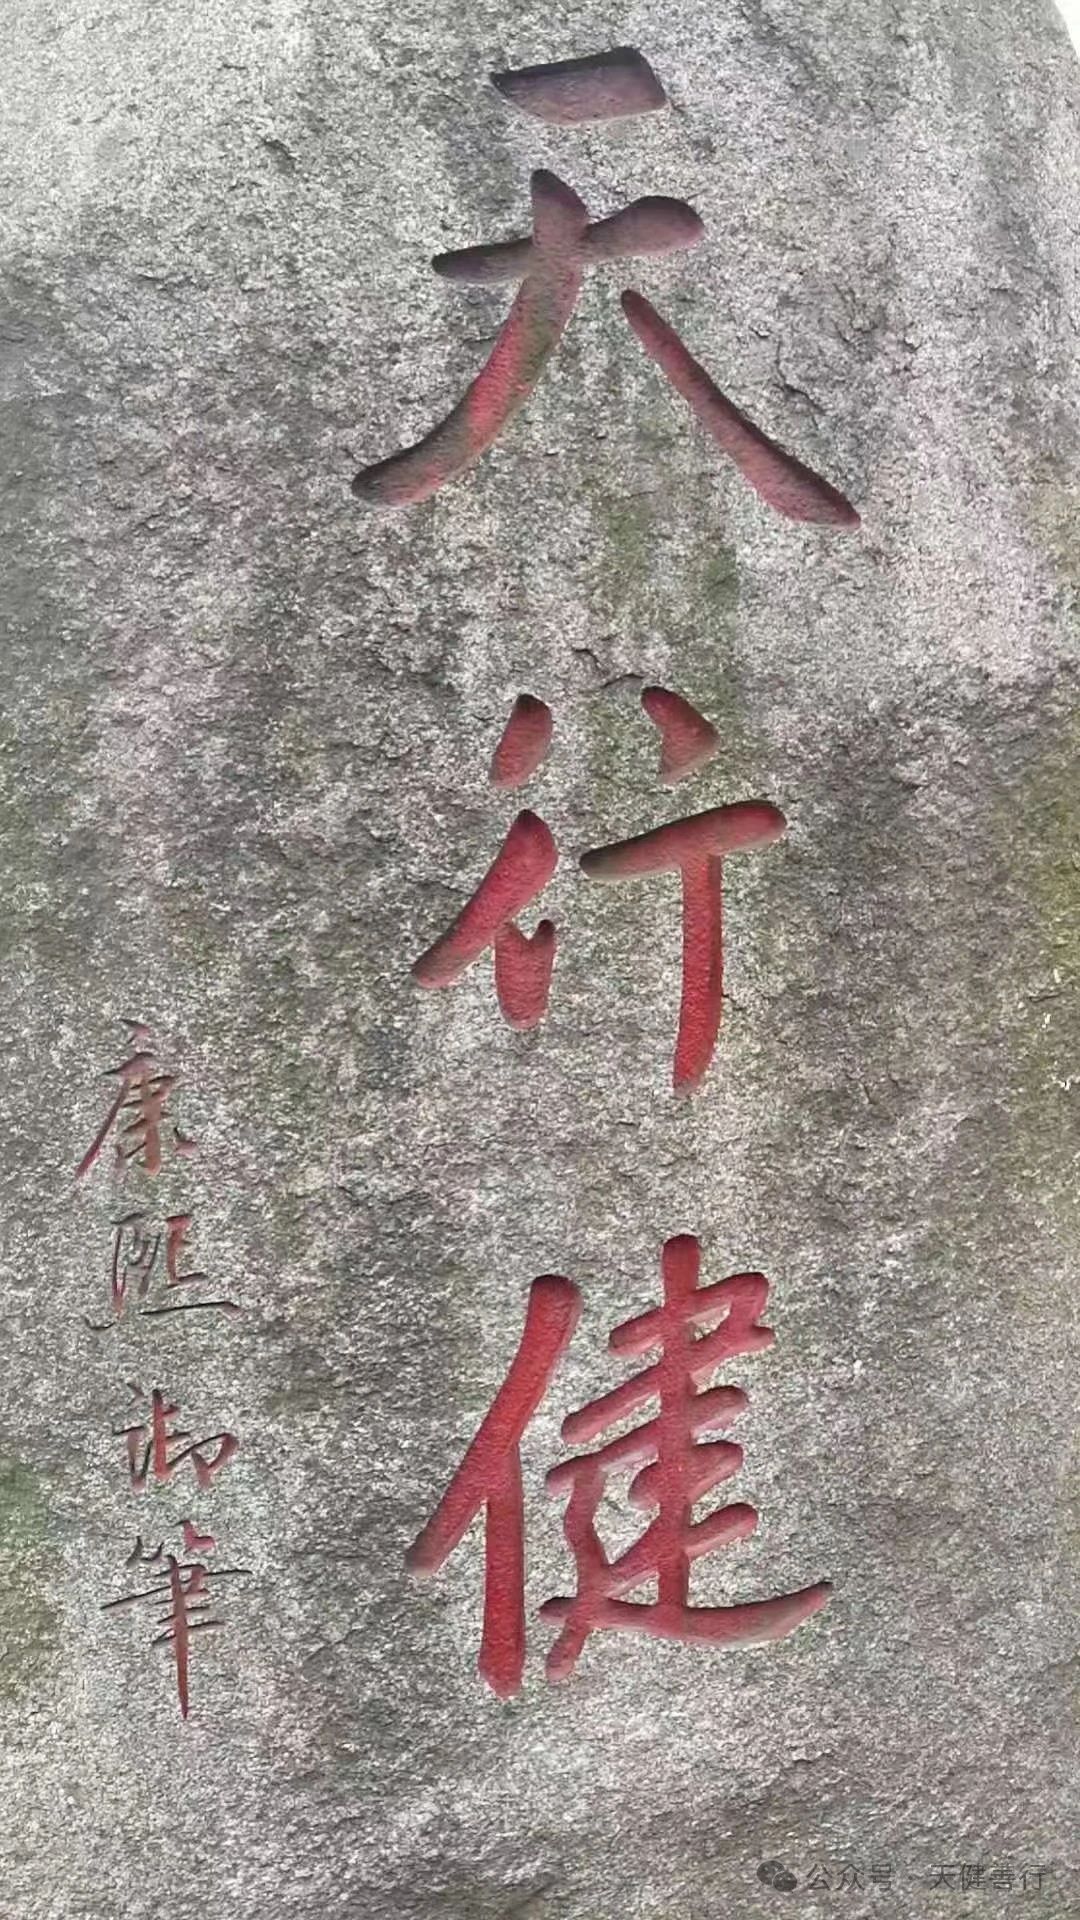 天行健
康熙御筆
公众号·天健善行